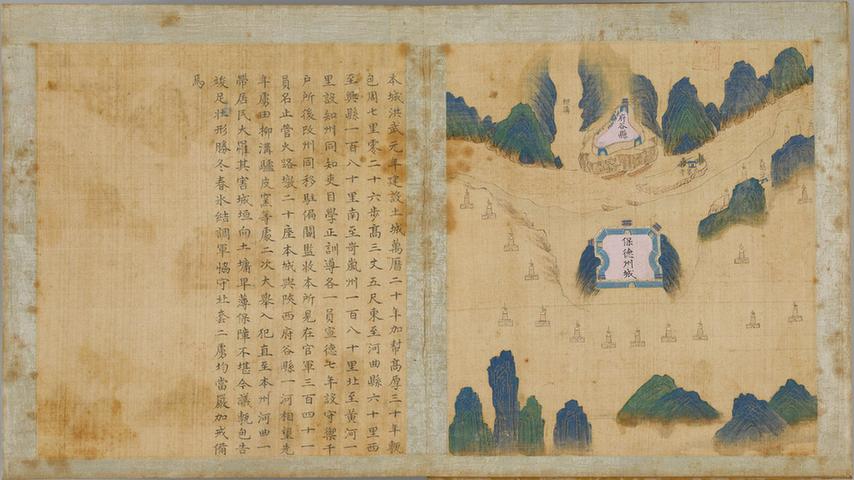 本城洪武元年建設土城萬曆二十年加幇高厚三十年甎
包周七里零二十六步高三丈五尺東至河曲縣六十里西
至興縣一百八十里南至岢嵐州一百八十里北至黃河一
里設知州同知吏目學正訓導各一員宣德七年設守禦千
戶所後改州同移駐偏關監收本所見在官軍三百四十一
員名止管火路墩二十座本城與陝西府谷縣一河相望先
年虜由柳溝驢皮窯等處二次大舉入犯直至本州河曲一
帶居民大罹其害城垣向土墉卑薄保障不堪今議甎包告
竣足壯形勝冬春氷結調軍恊守北套二虜均當嚴加戒備
焉
府谷縣
保德州城